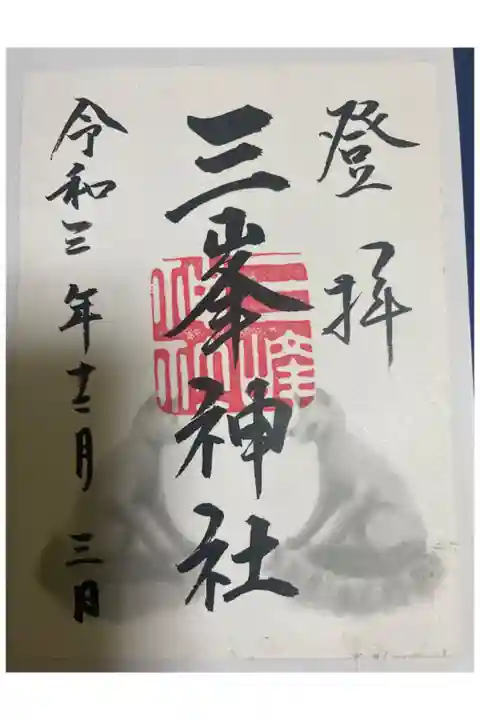 登拝
三峯神社
令和三年十二月三日